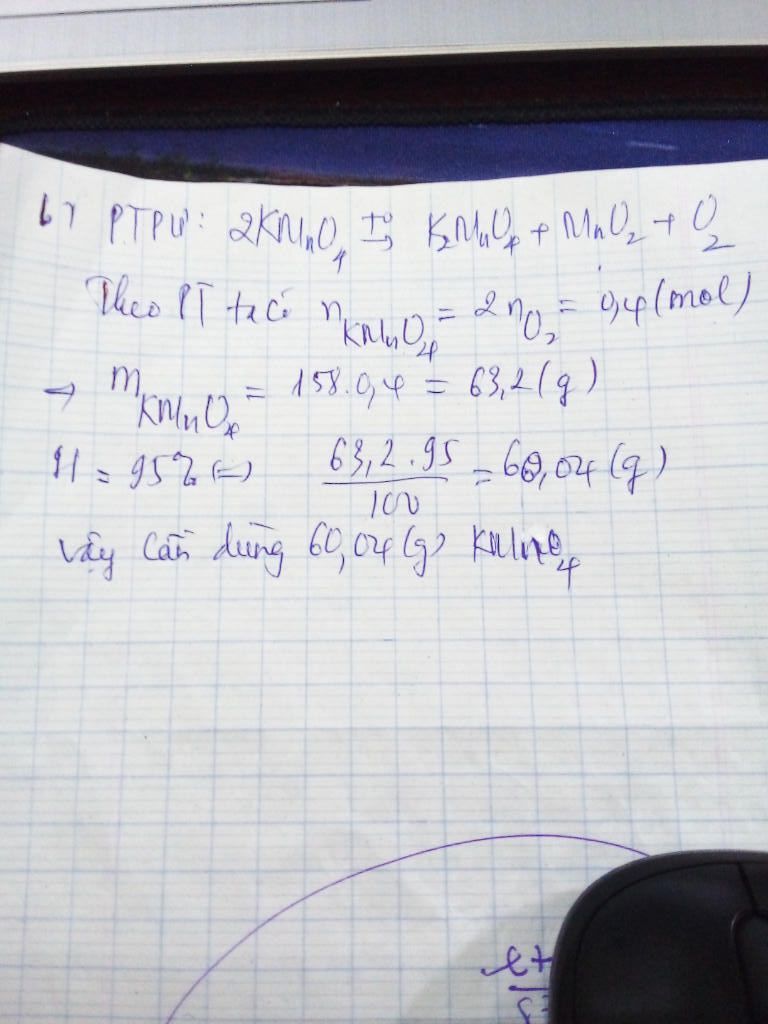 b) PTPƯ: 2KMnO₄ t⁰→ K₂MnO₄ + MnO₂ + O₂
Theo PT ta có n KMnO₄ = 2n O₂ = 0,4 (mol)
→ m KMnO₄ = 158.0,4 = 63,2 (g)
H = 95% (=) 63,2.95/100 = 60,04 (g)
Vậy cần dùng 60,04 (g) KMnO₄